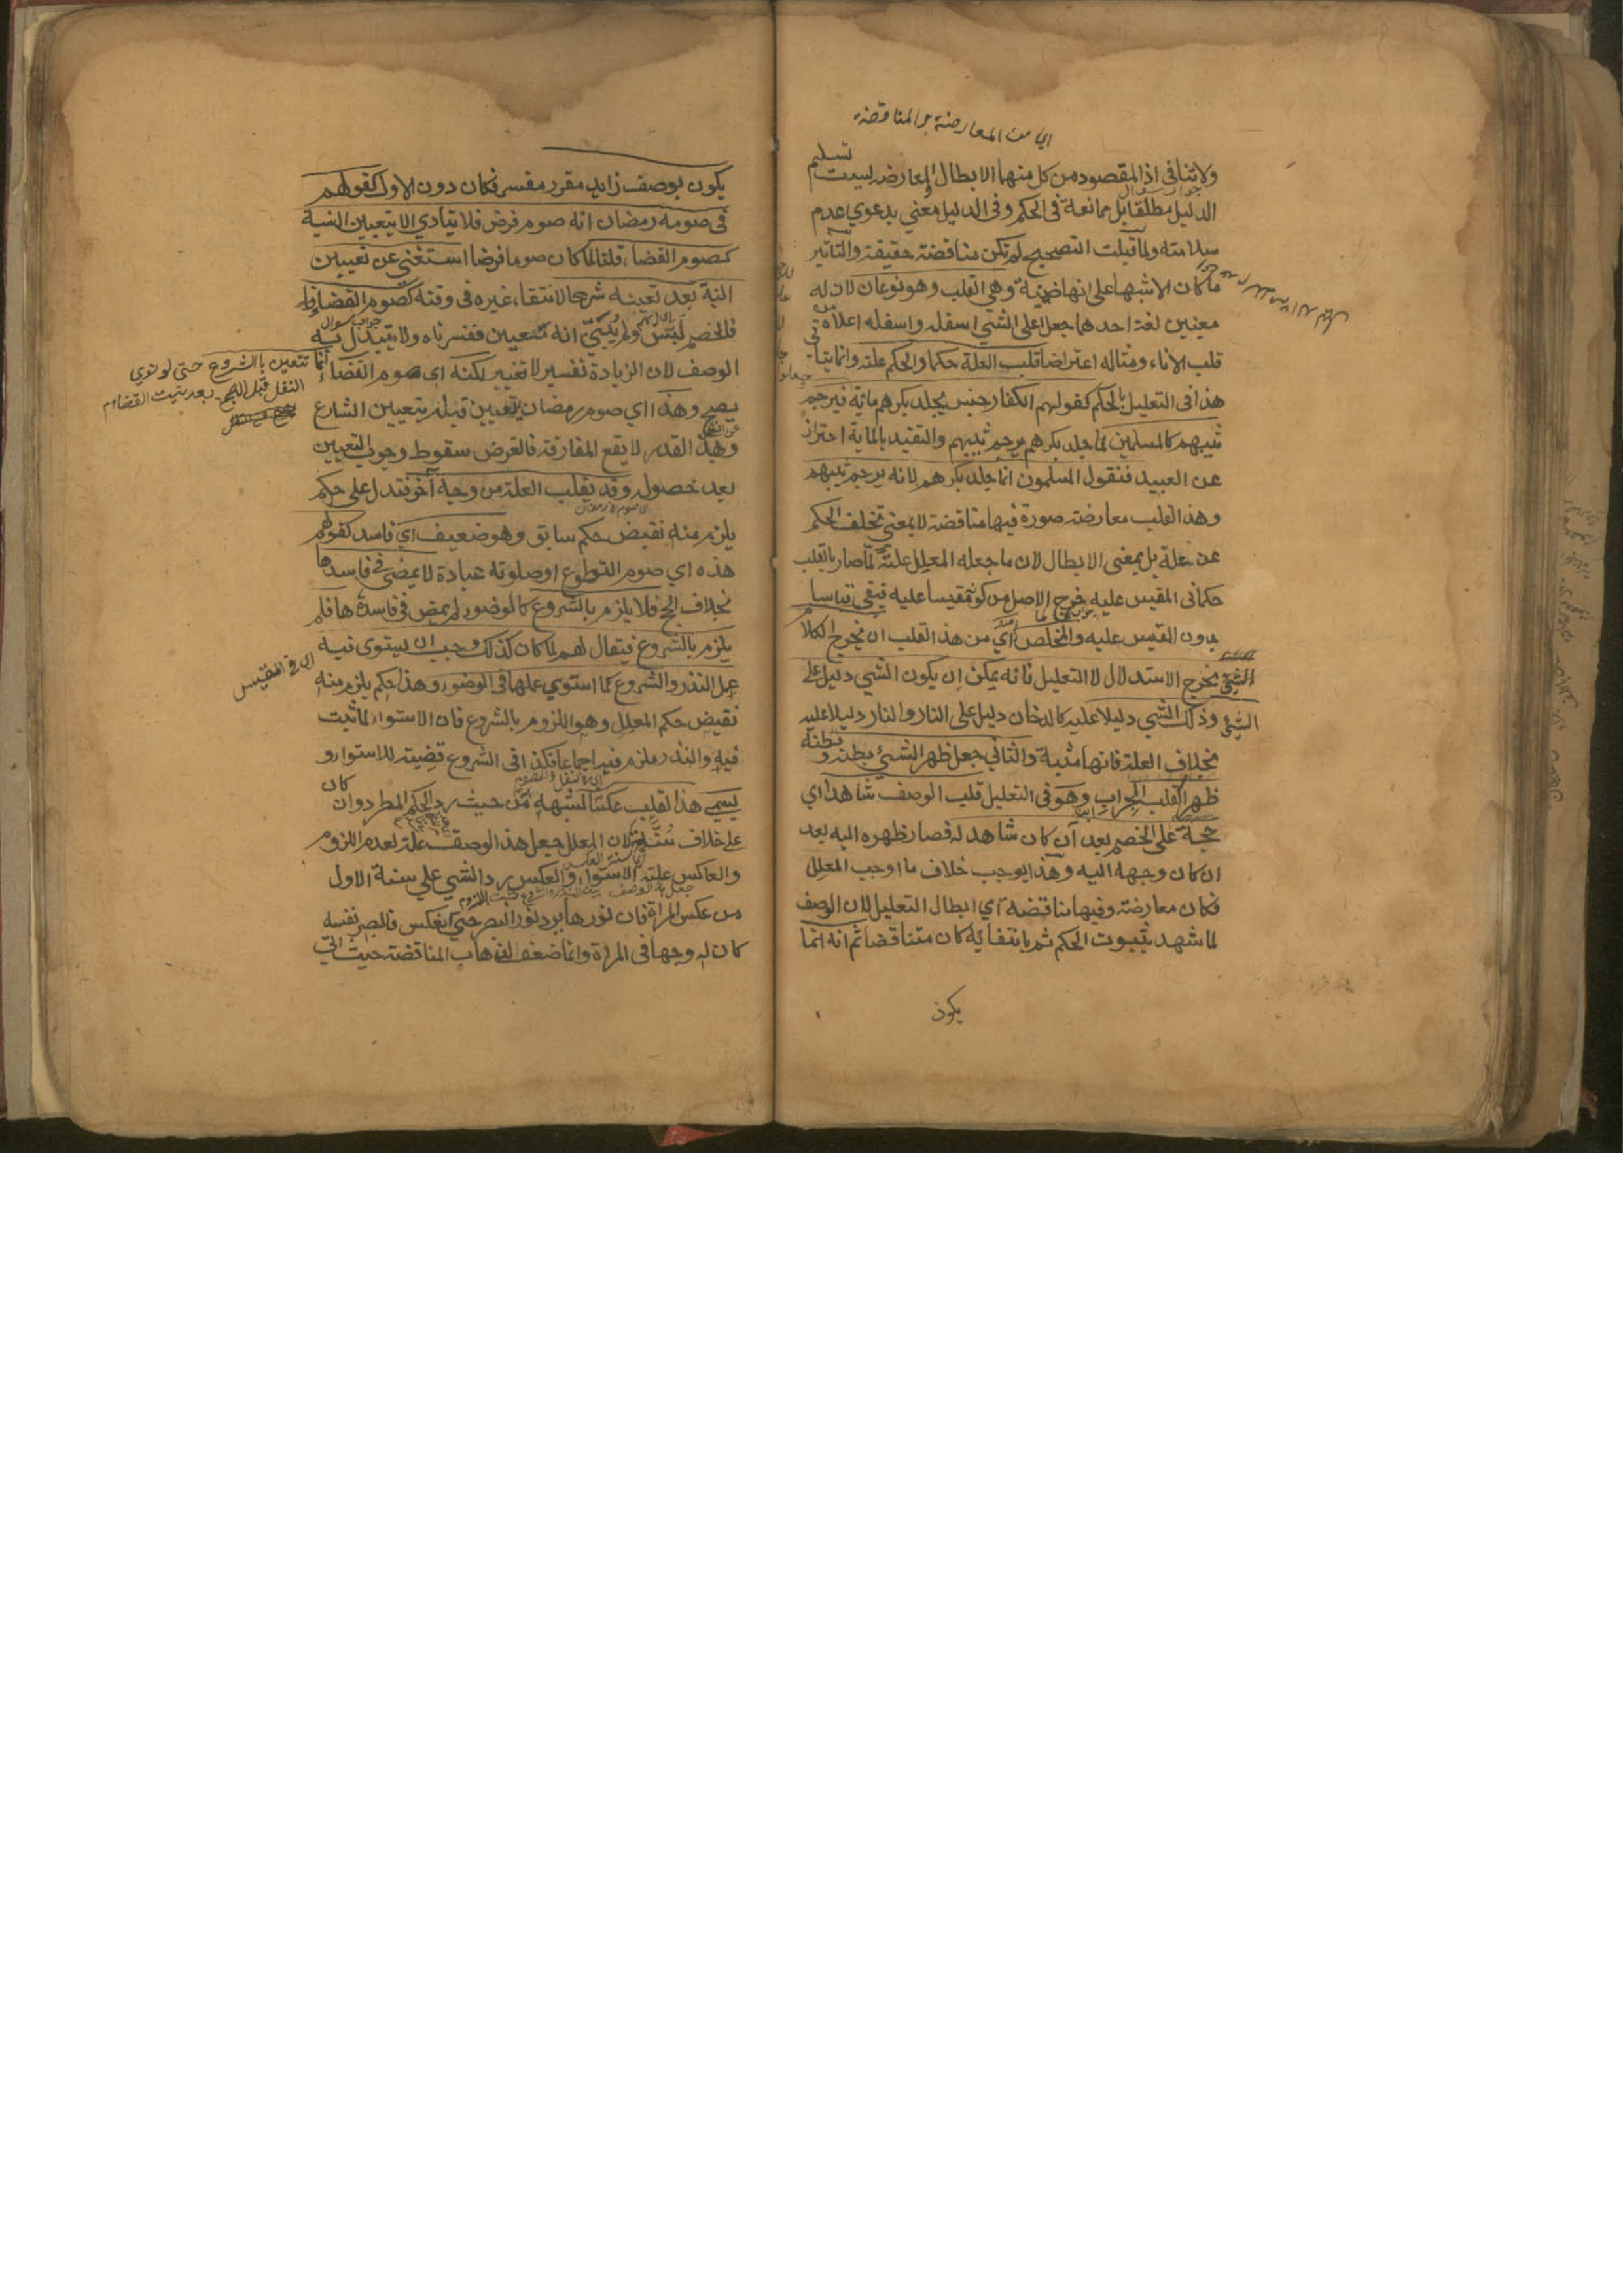 اي من المعارضة و المناقضة
ولا تنافي اذ المقصود من كل منهما الابطال المعارضة ليست تسليم
الدليل مطلقا بل ممانعة في الحكم وفي الدليل معني بدعوي عدم
سلامته ولما قبلت التصحيح لم تكن مناقضة حقيقة والتاثير
ما كان الاشبها على انها ضمنية وهي القلب وهو نوعان لان له
معنيين لغة احدهما جعل اعلى الشي اسفله واسفله اعلاه
قلب الاناء ومثاله اعتراضا قلب العلة حكما والحكم علة وانما يتاتي
هذا في التعليل بالحكم كقولهم الكفار جنس يجلد بكرهم ماية فيرجم
ثيبهم كالمسلمين لما جلد بكرهم يرجم ثيبهم والتقيد بالماية احتراز
عن العبيد فنقول المسلمون انما جلد بكرهم لانه يرجم ثيبهم
وهذا القلب معارضة صورة فيها مناقضة لا بمعنى تخلف الحكم
عن علة بل بمعنى الابطال لان ما جعله المعلل علة لما صار بالقلب
حكما في المقيس عليه خرج الاصل من كونه مقيسا عليه فيبقى قياسا
بدون المقيس عليه والمخلص اي من هذا القلب ان يخرج الكلام
مخرج الاستدلال لا التعليل فانه يمكن ان يكون الشي دليل على
الشئ وذلك الشي دليلا عليه كالدخان دليل على النار والنار دليلا عليه
بخلاف العلة فانها مثبتة والثاني جعل ظهر الشئ بطنه و بطنه
ظهر كقلب الجراب وهو في التعليل قلب الوصف شاهدا اي
حجة على الخصم بعد ان كان شاهد له فصار ظهره اليه بعد
ان كان وجهه اليه وهذا يوجب خلاف ما اوجب المعلل
فكان معارضة وفيها مناقضة اي ابطال التعليل لان الوصف
لما شهد بثبوت الحكم ثم بانتفائه كان متناقضا ثم انه انما
يكون
يكون بوصف زايد مقرر مفسر فكان دون الاول كقولهم
في صومه رمضان انه صوم فرض فلا يتادي الا بتعيين النية
كصوم القضاء قلنا لما كان صوما فرضا استغني عن تعيين
النية بعد تعينه شرعا لانتفاء غيره في وقته كصوم القضاء
فالخصم لبس ولم يبين انه متعيين ففسرناه ولا يتبدل به
جواب سوال
الوصف لان الزيادة تفسير لا تغيير لكنه اي صوم القضاء انما تتعين بالشروع حتى لو نوي
النفل قبل الصبح بعد نيت القضاء
يصح وهذا اي صوم رمضان تعيين قبله بتعيين الشارع
وهذا القدر لا يقع المفارقة فالغرض سقوط وجوب التعيين
بعد حصوله وقد يقلب العلة من وجه آخر فتدل على حكم
يلزم منه نقيض حكم سابق وهو ضعيف اي فاسد كقولهم
هذه اي صوم التطوع او صلوته عبادة لا يمضى في فاسدها
بخلاف الحج فلا يلزم بالشروع كالوضوء لم يمض في فاسدها فلم
يلزم بالشروع فيقال لهم لما كان كذلك وجب ان يستوى فيه
اي في المقيس
عمل النذر والشروع كما استوي عملها في الوضوء وهذا حكم يلزم منه
نقيض حكم المعلل وهو اللزوم بالشروع فان الاستواء لما ثبت
فيه والنذر ملزم فيه اجماعا فكذا في الشروع قضية للاستواء و
يسمي هذا القلب عكسا لشبهه من حيث رد الحكم المطرد وان كان
على خلاف سننه لان المعلل جعل هذا الوصف علة لعدم اللزوم
والعاكس علة الاستواء والعكس رد الشي على سنة الاول
من عكس المراة فان نورها يرد نور البصر حتى انعكس فالبصر نفسه
كان له وجها في المراة وانما ضعف لذهاب المناقضة حيث اتي